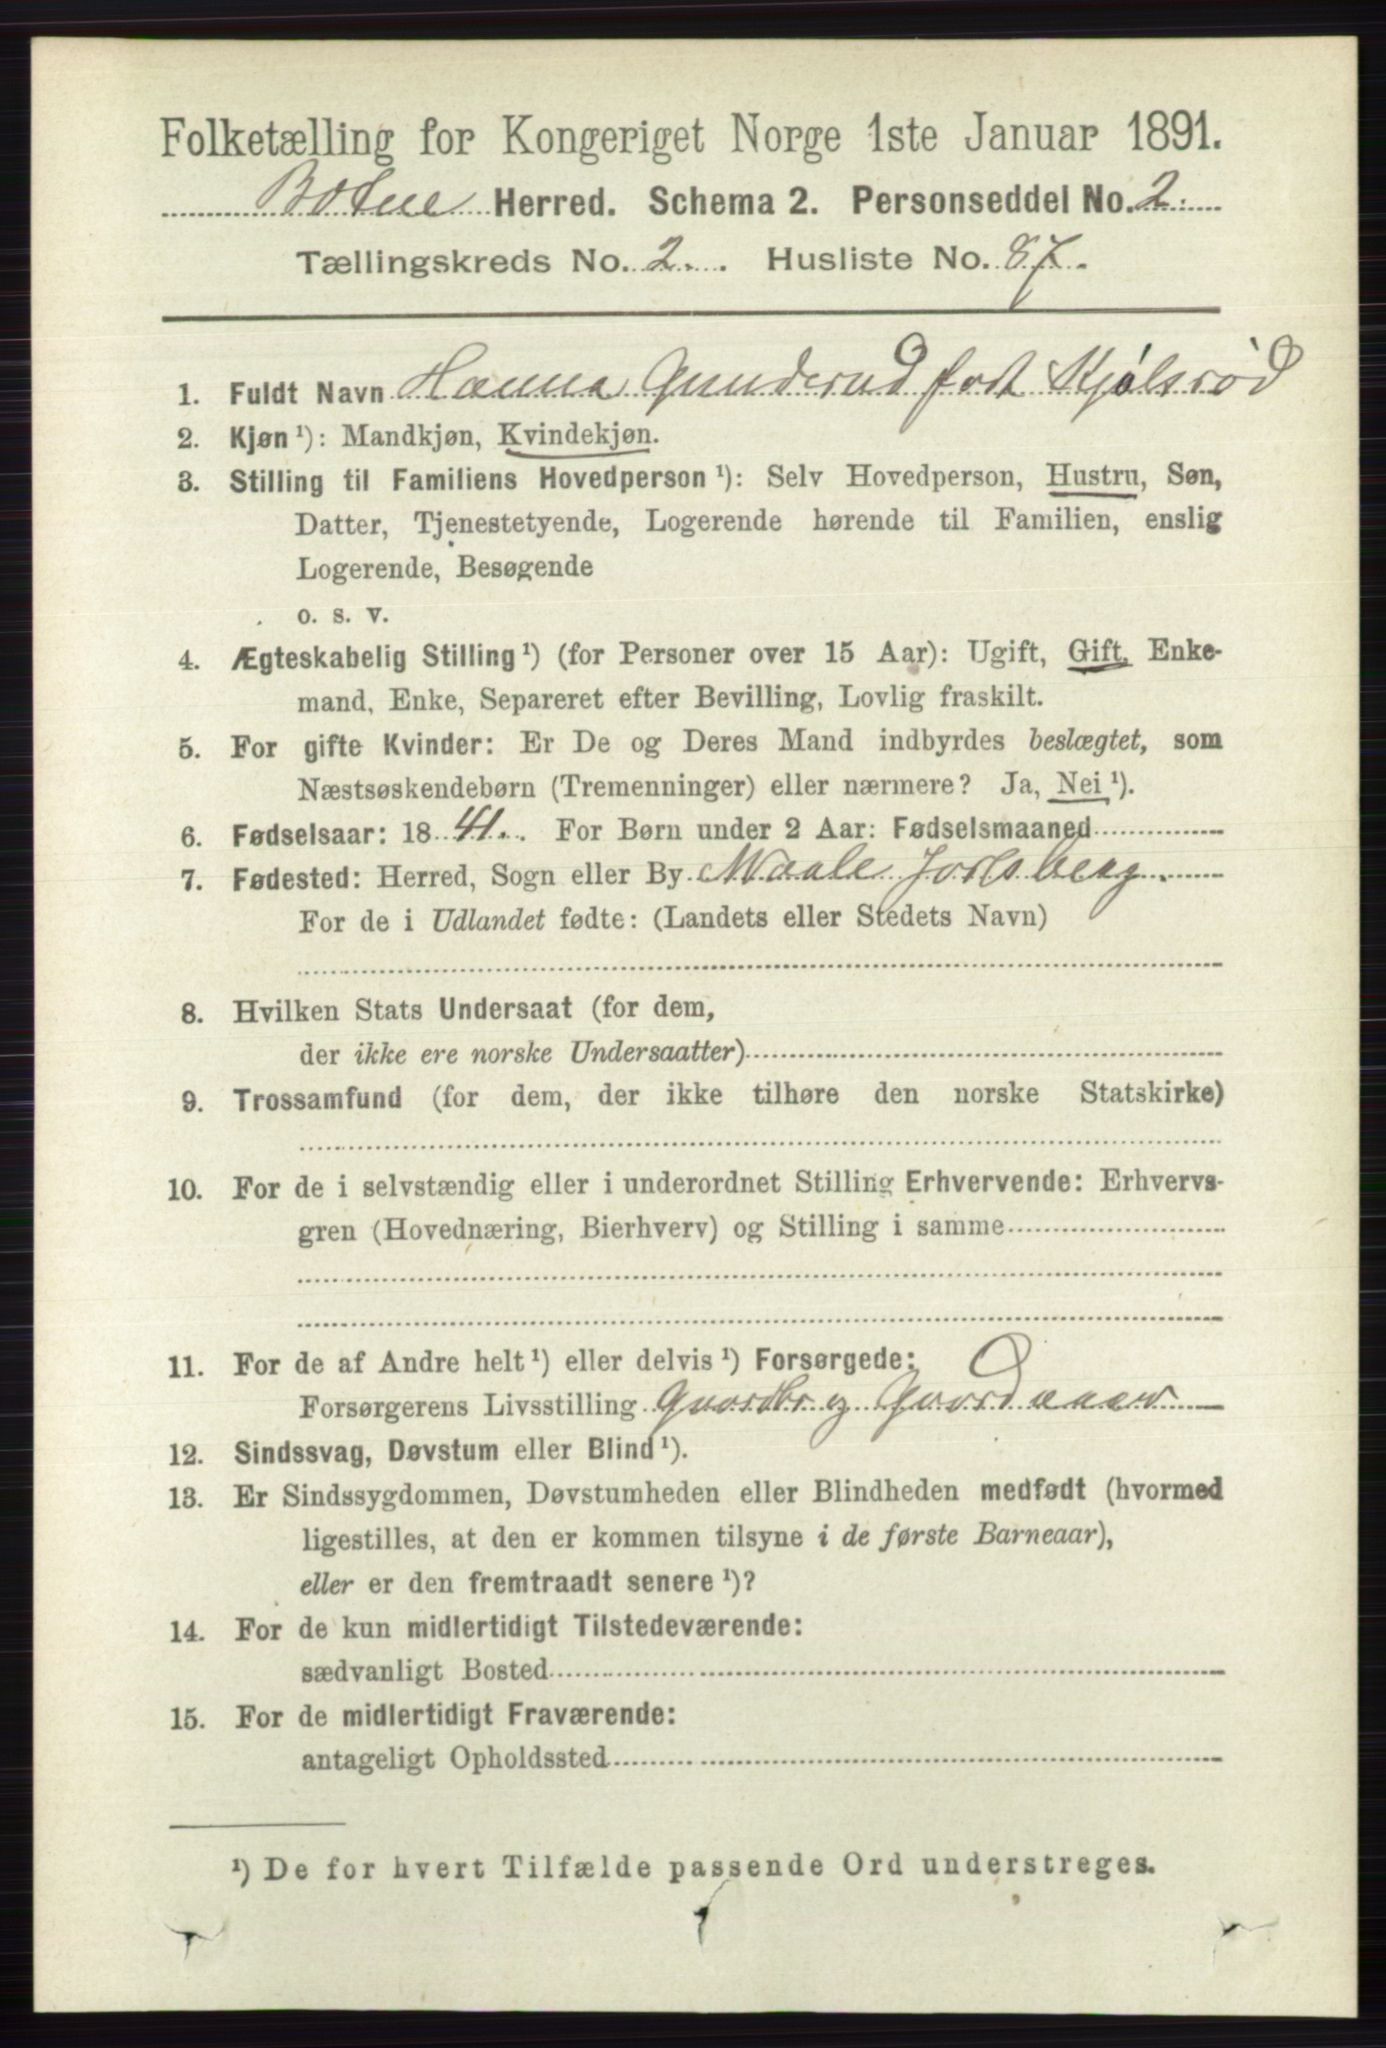 Folketælling for Kongeriget Norge 1ste Januar 1891.
Botne Herred. Schema 2. Personseddel No. 2.
Tællingskreds No. 2. Husliste No. 87.
1. Fuldt Navn Hanna Gunderud født Kjølsrød
2. Kjøn ¹): Mandkjøn, Kvindekjøn.
3. Stilling til Familiens Hovedperson ¹): Selv Hovedperson, Hustru, Søn,
Datter, Tjenestetyende, Logerende hørende til Familien, enslig
Logerende, Besøgende
o. s. v.
4. Ægteskabelig Stilling ¹) (for Personer over 15 Aar): Ugift, Gift, Enke-
mand, Enke, Separeret efter Bevilling, Lovlig fraskilt.
5. For gifte Kvinder: Er De og Deres Mand indbyrdes beslægtet, som
Næstsøskendebørn (Tremenninger) eller nærmere? Ja, Nei ¹).
6. Fødselsaar: 1841. For Børn under 2 Aar: Fødselsmaaned
7. Fødested: Herred, Sogn eller By Vaale Jarlsberg.
For de i Udlandet fødte: (Landets eller Stedets Navn)
8. Hvilken Stats Undersaat (for dem,
der ikke ere norske Undersaatter)
9. Trossamfund (for dem, der ikke tilhøre den norske Statskirke)
10. For de i selvstændig eller i underordnet Stilling Erhvervende: Erhvervs-
gren (Hovednæring, Bierhverv) og Stilling i samme
11. For de af Andre helt ¹) eller delvis ¹) Forsørgede:
Forsørgerens Livsstilling Gaardbr og
12. Sindssvag, Døvstum eller Blind ¹).
13. Er Sindssygdommen, Døvstumheden eller Blindheden medfødt (hvormed
ligestilles, at den er kommen tilsyne i de første Barneaar),
eller er den fremtraadt senere ¹)?
14. For de kun midlertidigt Tilstedeværende:
sædvanligt Bosted
15. For de midlertidigt Fraværende:
antageligt Opholdssted
¹) De for hvert Tilfælde passende Ord understreges.